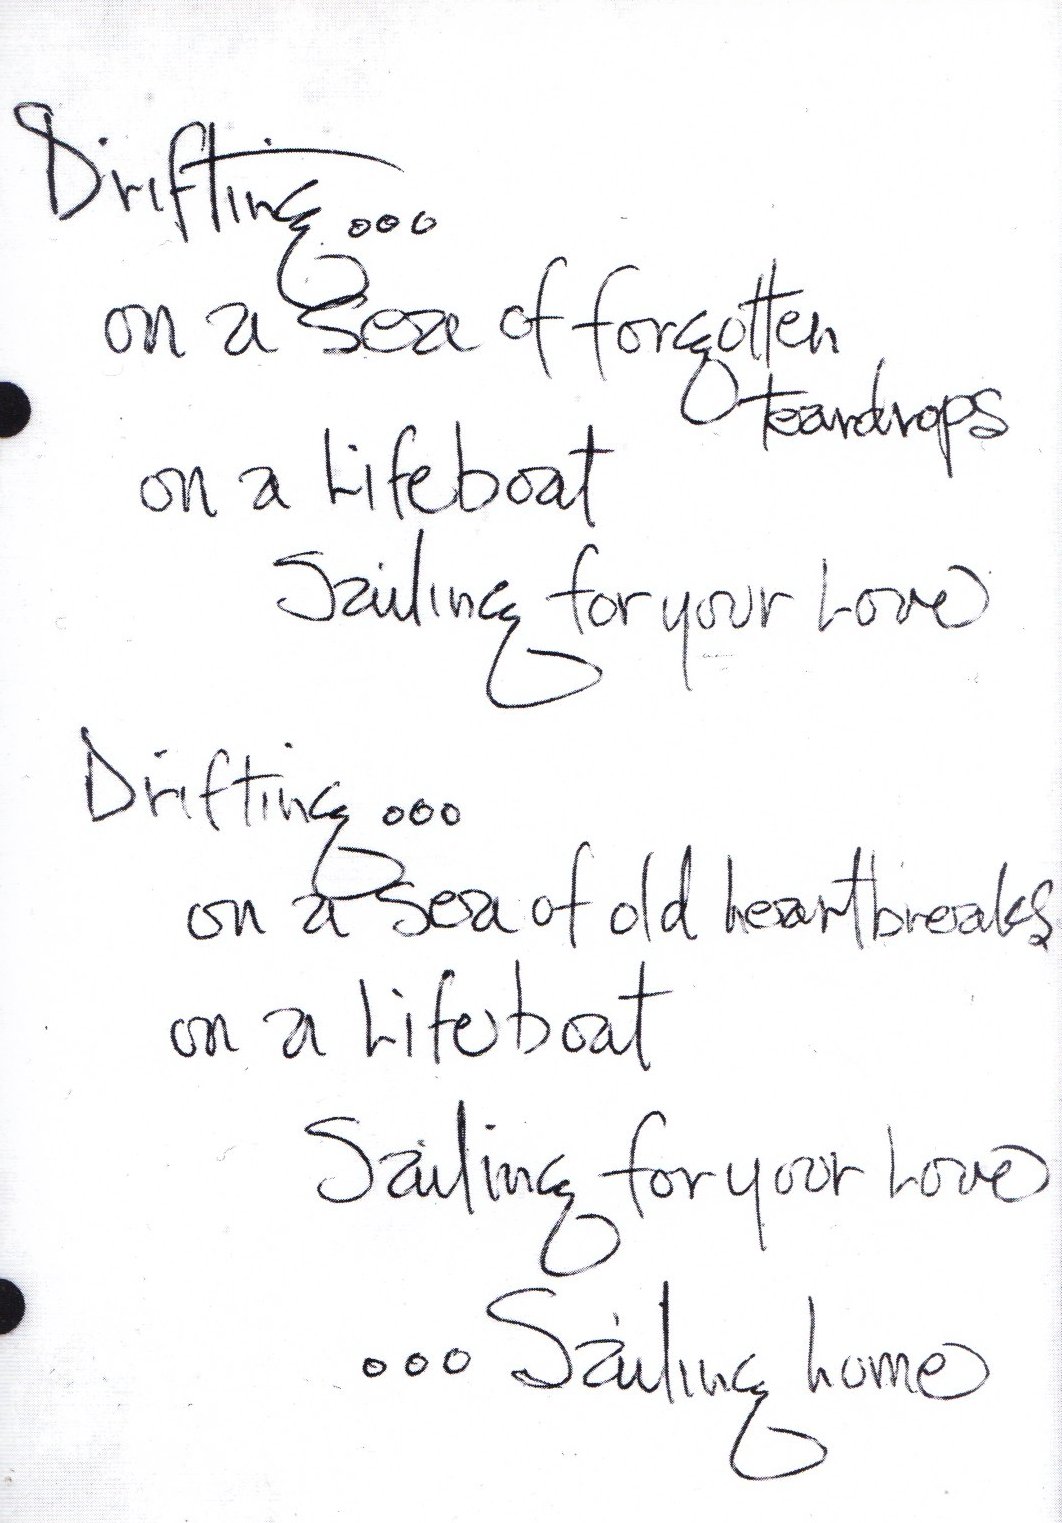 Drifting...
on a Sea of forgotten
teardrops
on a Lifeboat
Sailing for your Love
Drifting...
on a Sea of old heartbreaks
on a Lifeboat
Sailing for your Love
... Sailing home